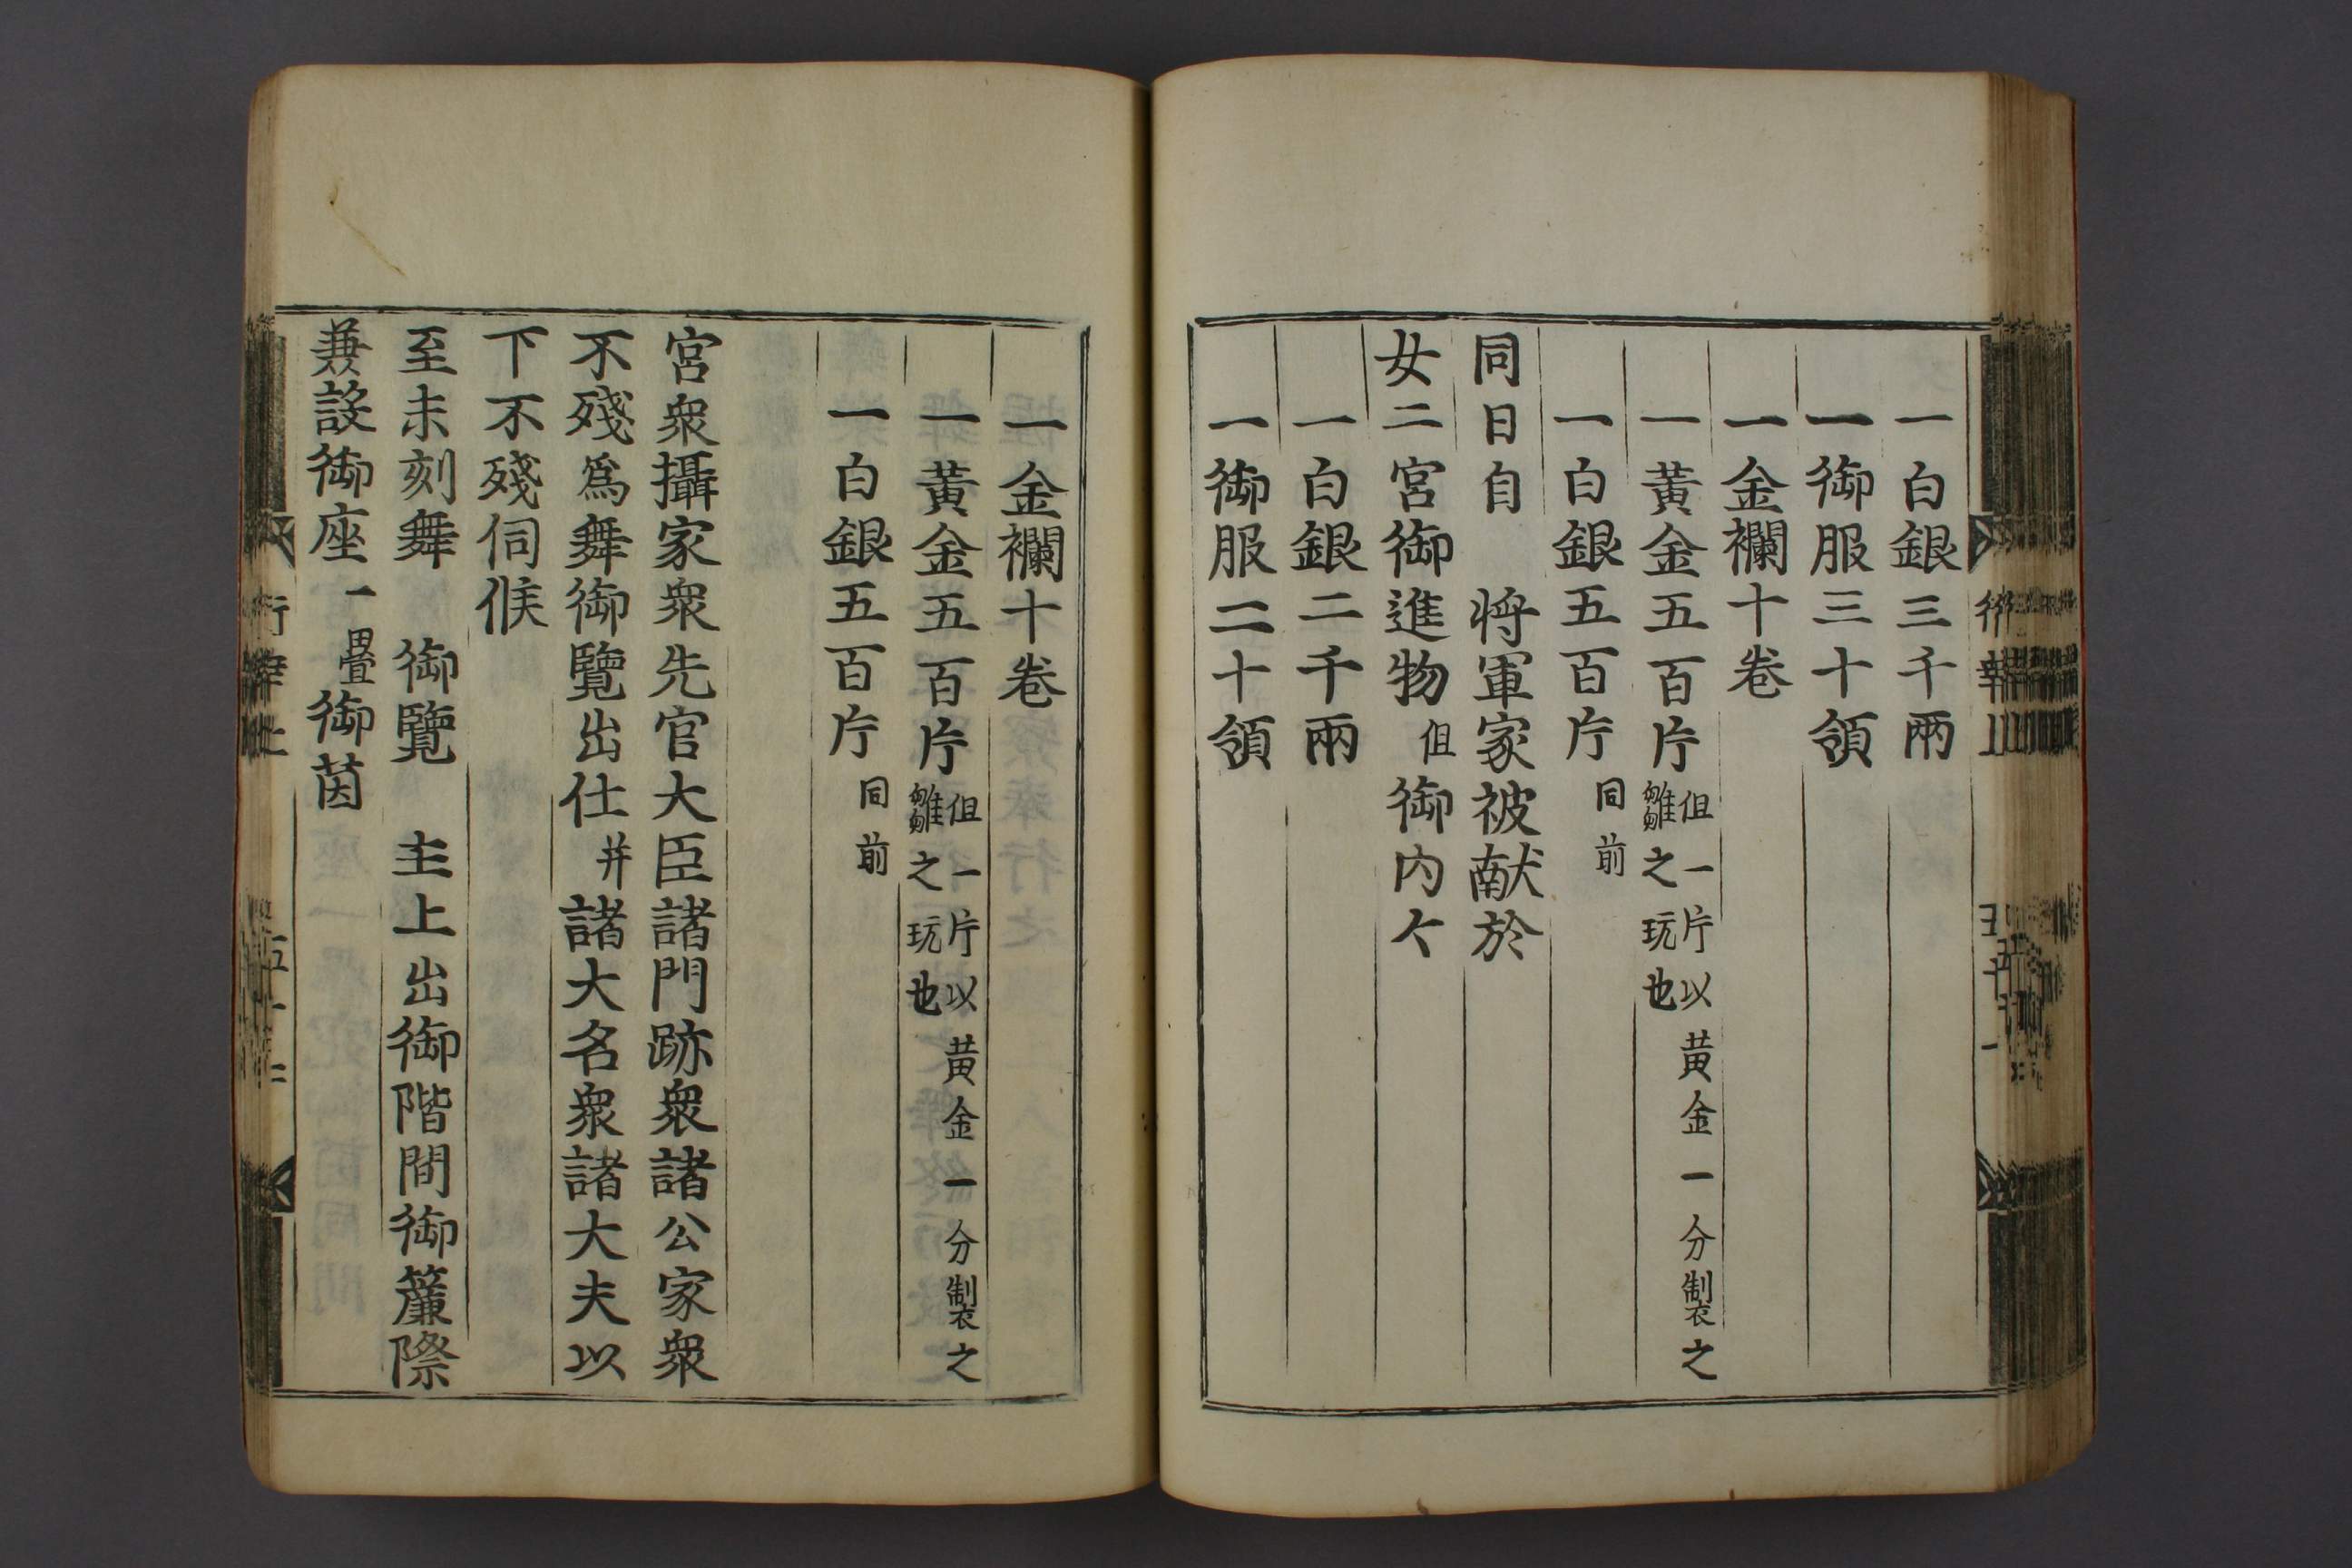 一白銀三千兩
一御服三十領
一金襴十卷
一黄金五百片但一片以黄金一分製之雛之玩也
一白銀五百片同前
同日自　将軍家被献於
女二宮御進物但御内々
一白銀二千兩
一御服二十領
一金襴十卷
一黄金五百片但一片以黄金一分製之雛之玩也
一白銀五百片同前
宮衆攝家衆先官大臣諸門跡衆諸公家衆
不殘爲舞御覽出仕并諸大名衆諸大夫以
下不殘伺候
至未刻舞　御覽　主上出御階間御簾際
兼設御座一畳御茵